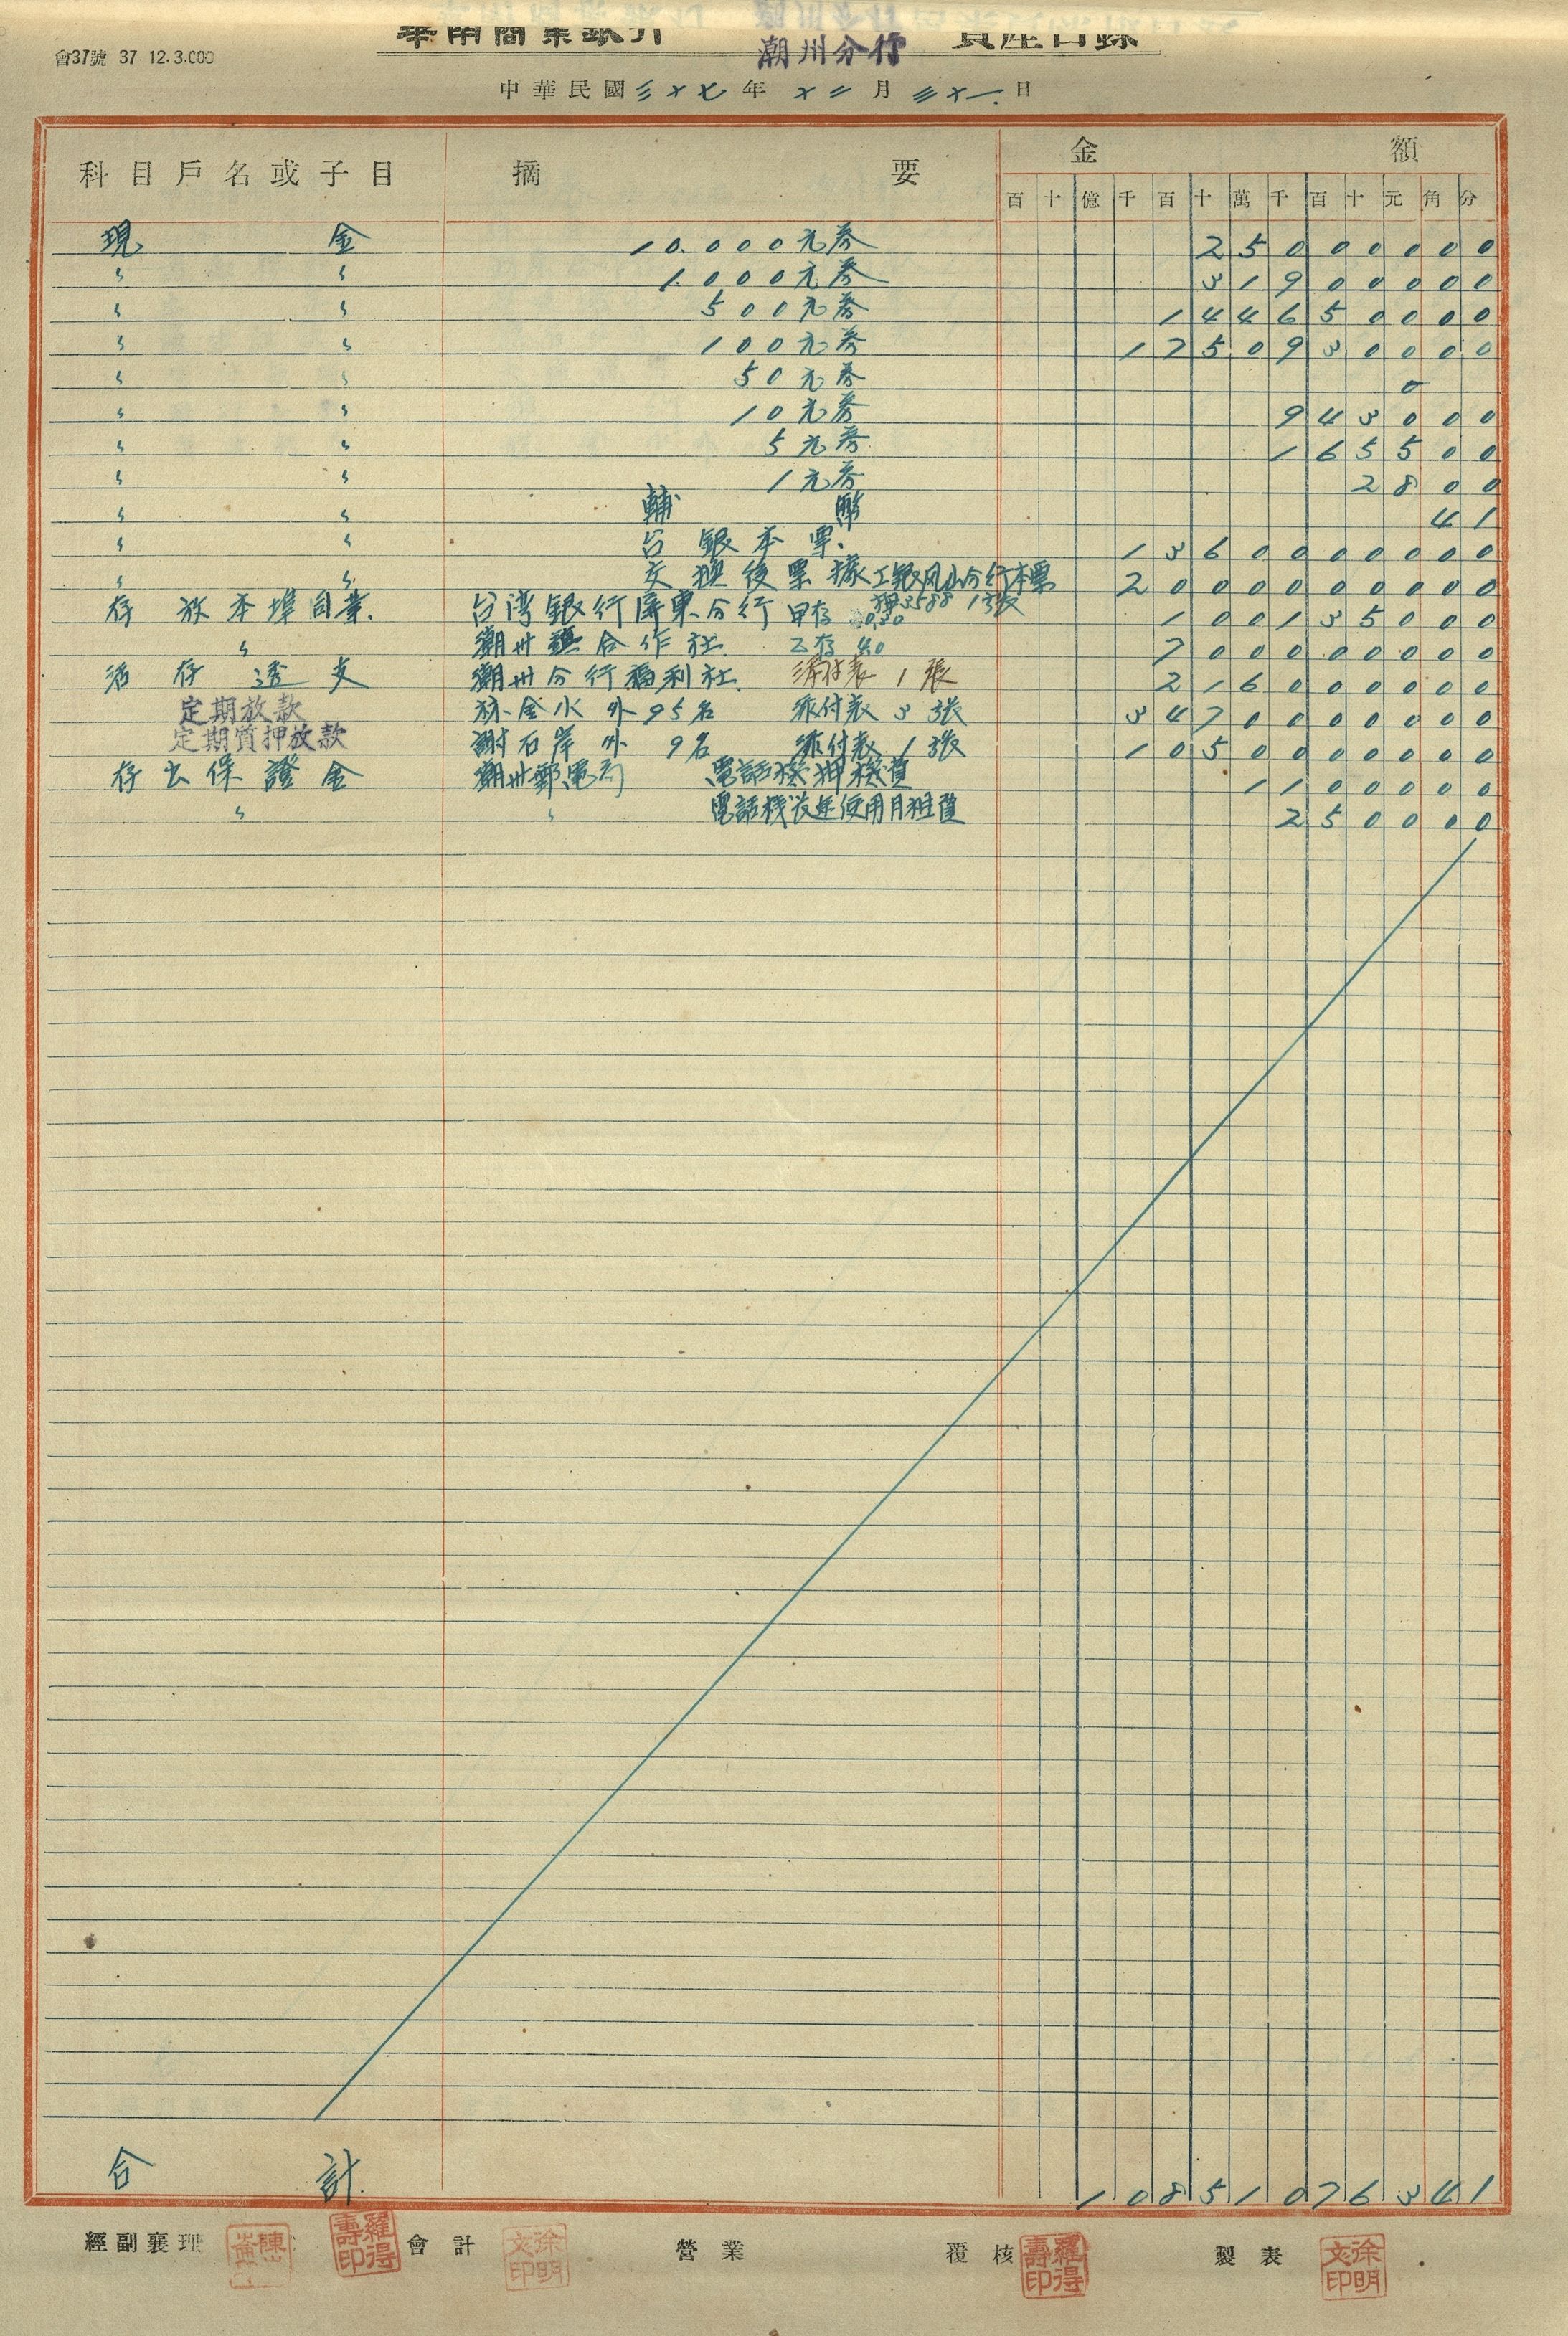 華南商業銀行 潮州分行 資產目錄
會37號 37.12.3.000
中華民國三十七年十二月三十一日
科目戶名或子目 摘要 金額
百十億千百十萬千百十元角分
現金 10.000元券 250000000
〃 〃 1.000元券 31900000
〃 〃 500元券 144650000
〃 〃 100元券 1750930000
〃 〃 50元券 0
〃 〃 10元券 943000
〃 〃 5元券 165500
〃 〃 1元券 2800
〃 〃 輔幣 41
〃 〃 台銀本票. 1360000000
〃 〃 交換後票據工銀凤山分行本票 2000000000
押3588 1張
存放本埠同業. 台湾銀行屏東分行 甲存 100135000
〃 潮州鎮合作社. 乙存 40 700000000
活存透支 潮州分行福利社. 添付表 1張 216000000
定期放款 林金水 外95名 添付表 3張 3470000000
定期質押放款 謝石岸 外 9名 添付表 1張 1050000000
存出保證金 潮州郵電局 電話機押機費 1100000
〃 〃 電話機設延使用月租費 250000
合計. 10851076341
經副襄理 會計 營業 覆核 製表
羅得壽印 徐明文印 羅得壽印 徐明文印